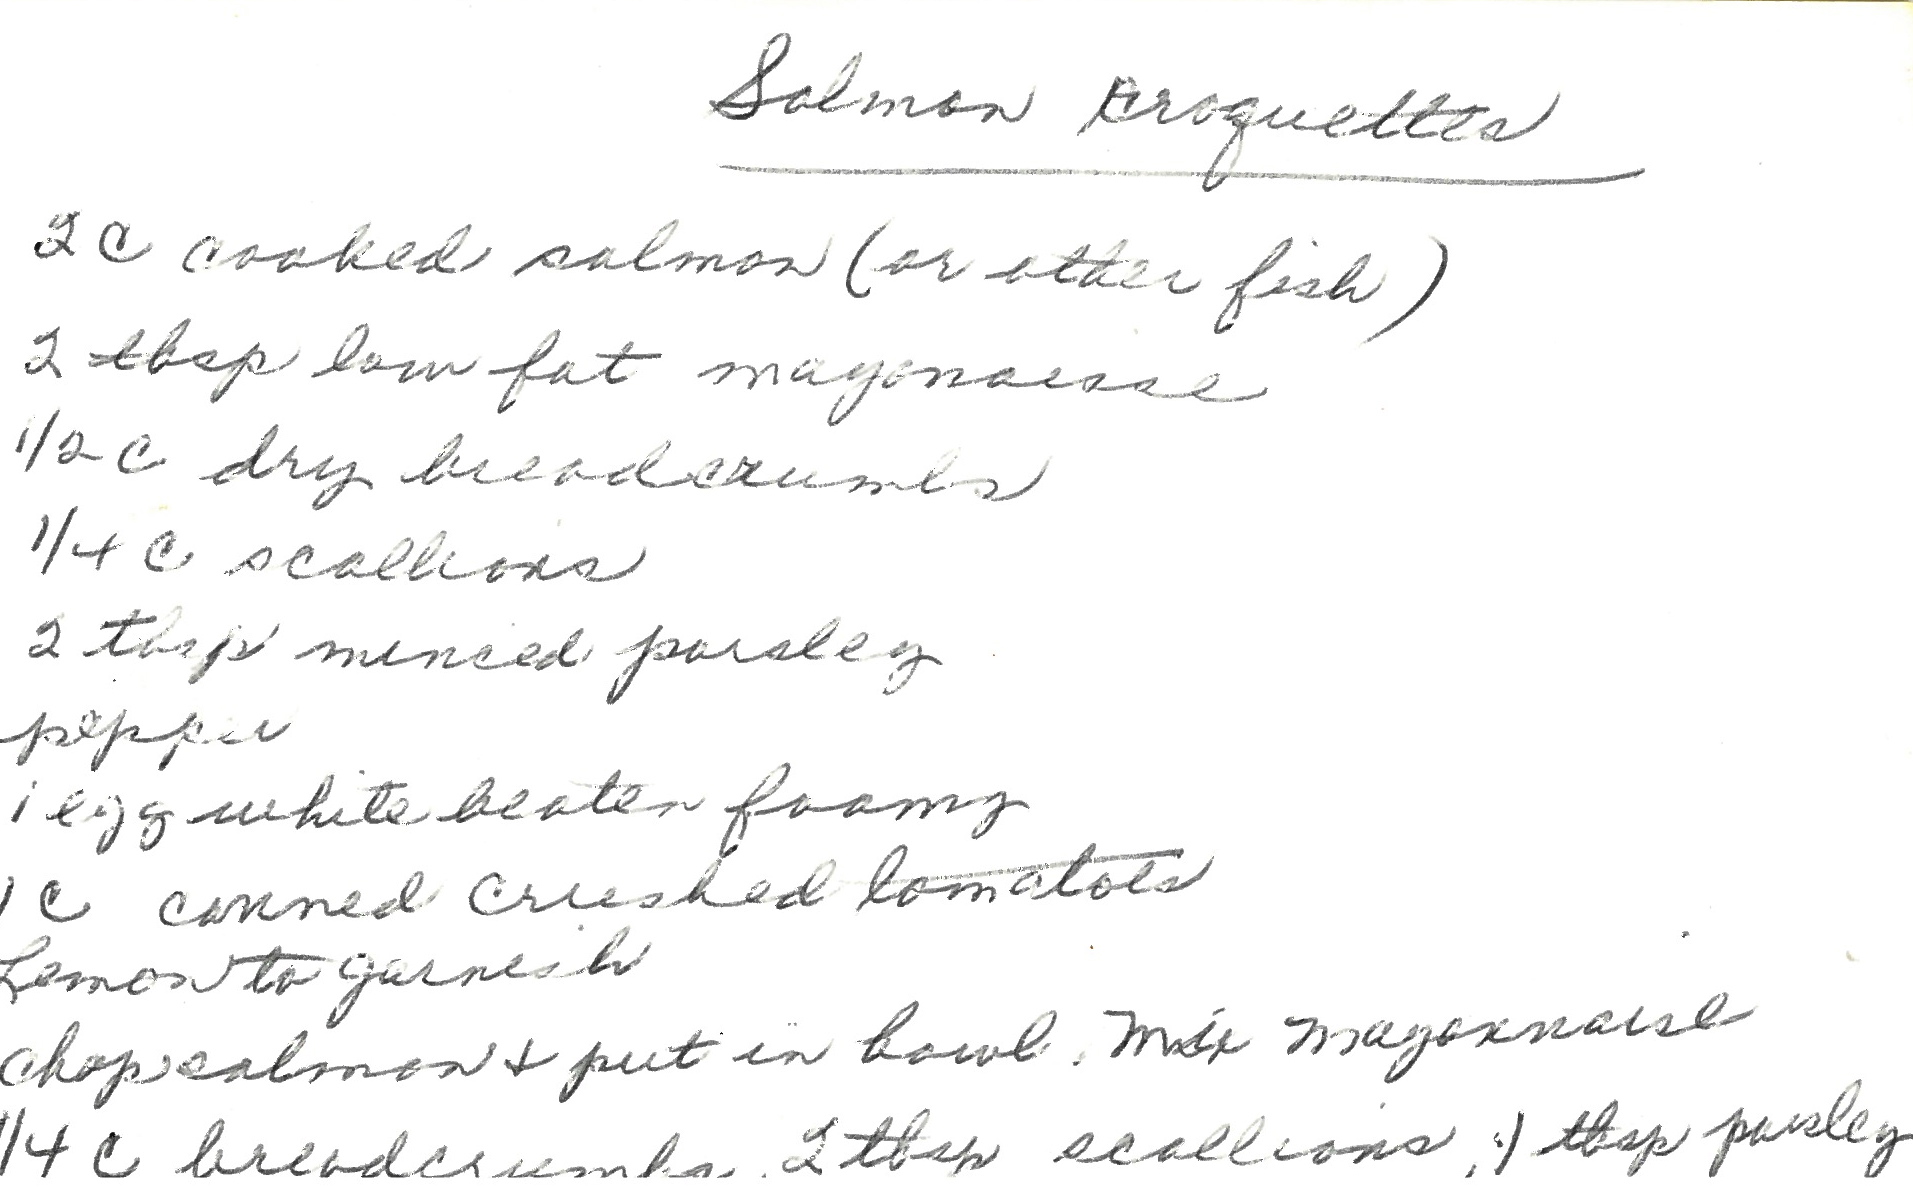 Salmon Croquettes
2 C cooked salmon (or other fish)
2 tbsp low fat mayonaisse
1/2 C dry breadcrumbs
1/4 C scallions
2 tbsp minced parsley
pepper
1 egg white beaten foamy
1 C canned crushed tomatoes
Lemon to garnish
chop salmon & put in bowl. Mix mayonnaise
1/4 C breadcrumbs, 2 tbsp scallions, 1 tbsp parsley